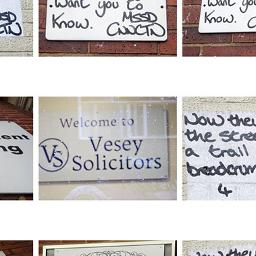 Want you to
Know. MSSD
CNNCTN
Want you
Know.
ent
ng
Welcome to
VS Vesey
Solicitors
Now they
the Stree
a trail
breadcrum
4